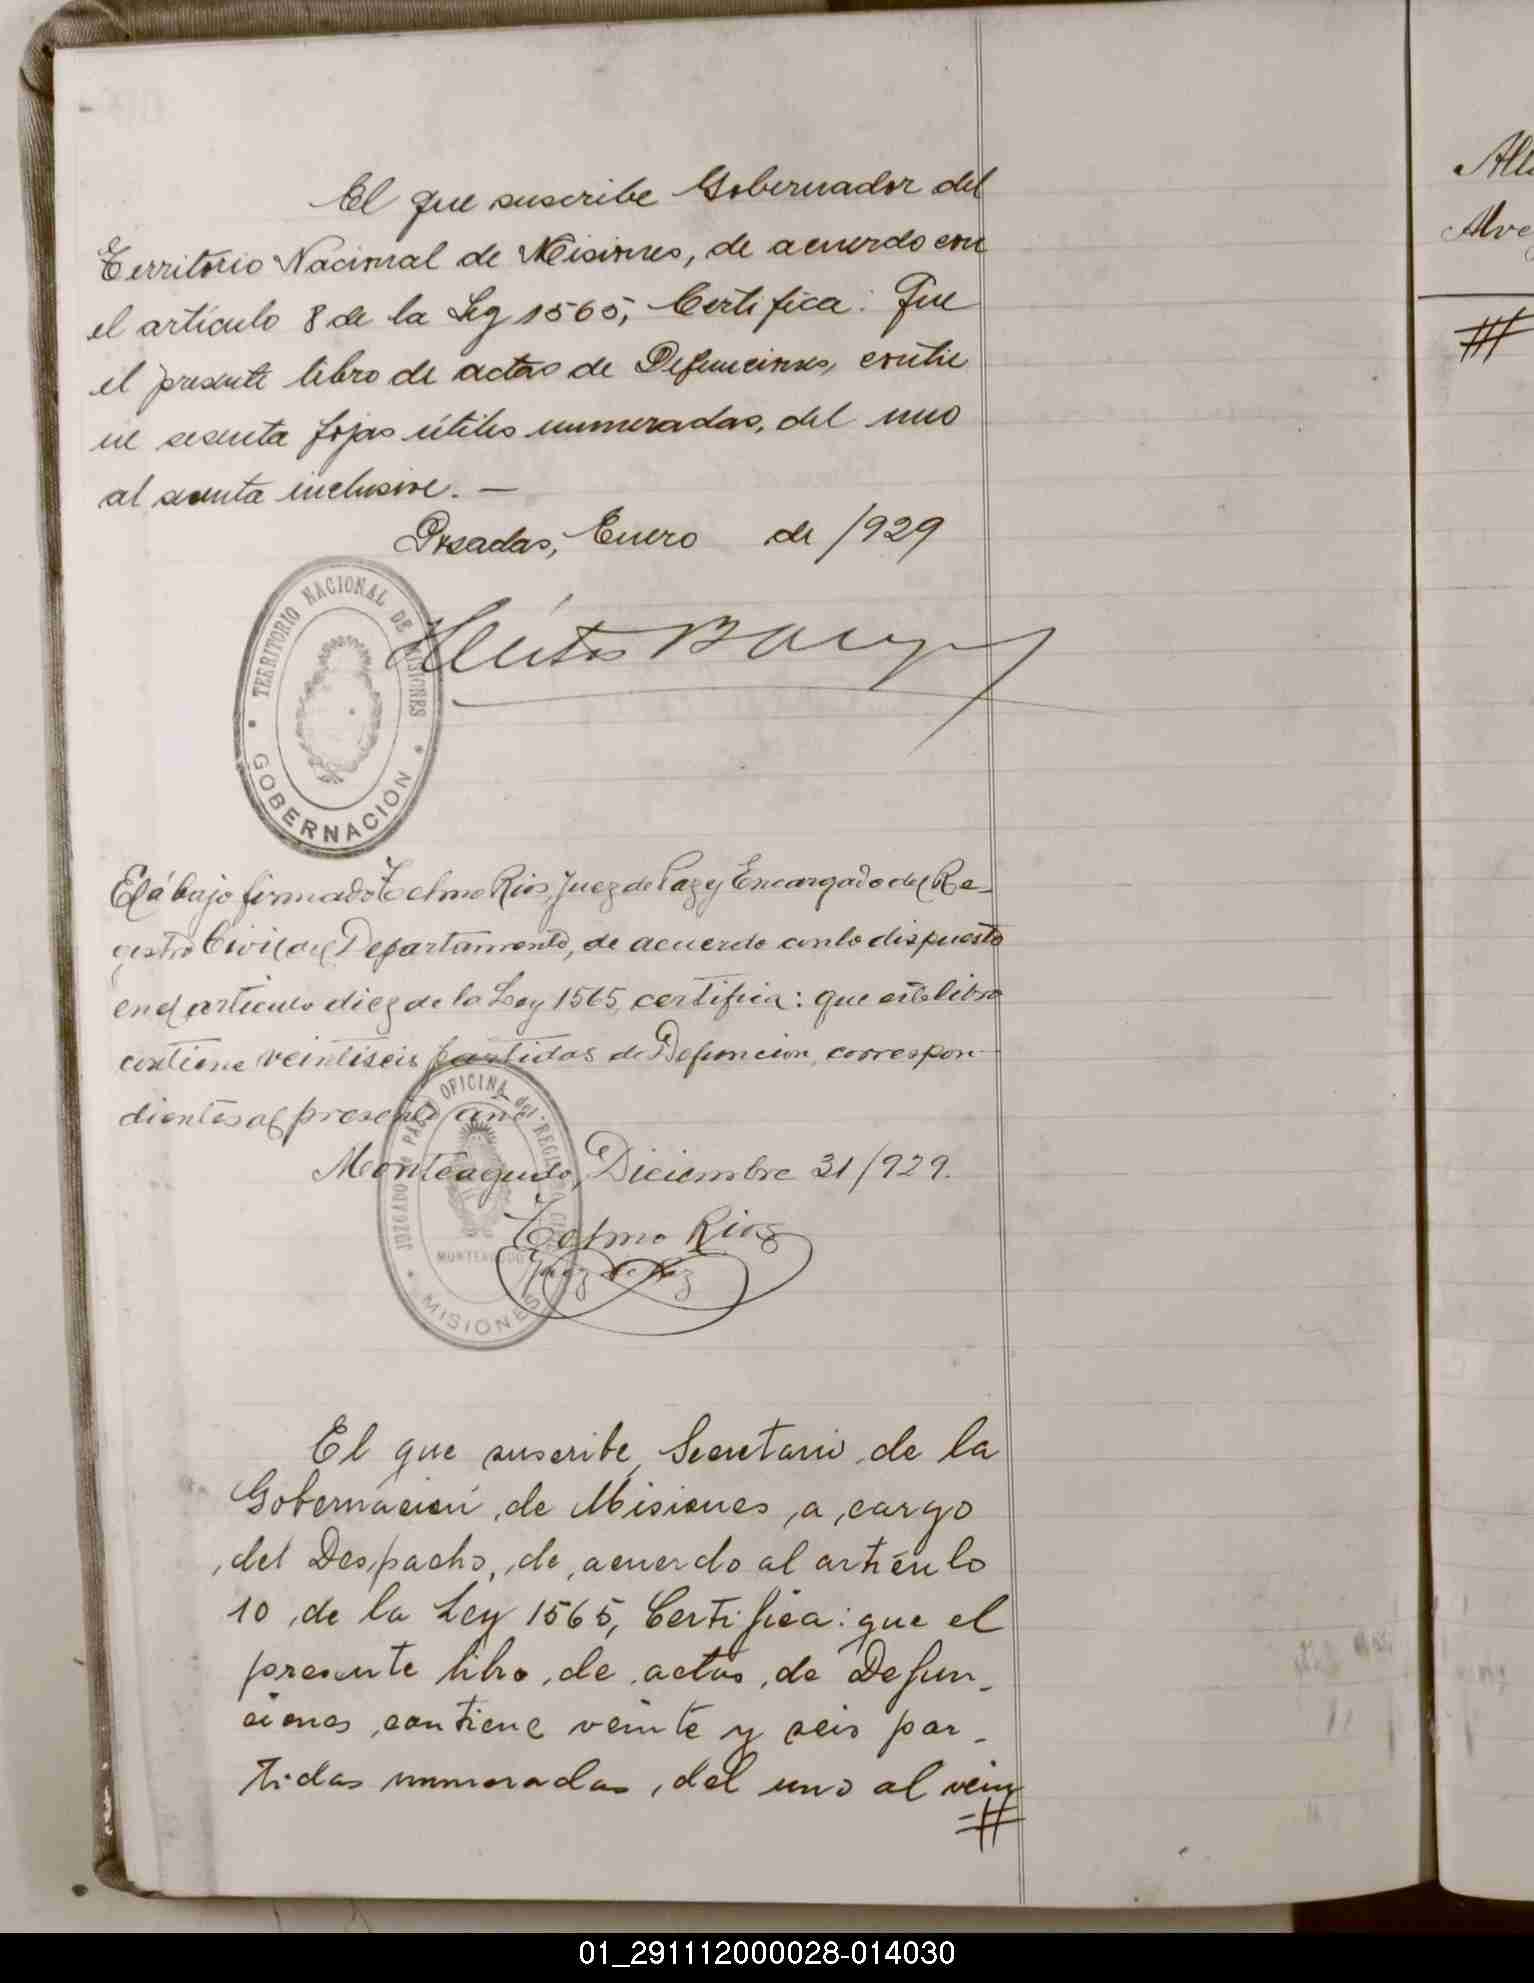 El que suscribe Gobernador del
Territorio Nacional de Misiones, de acuerdo con
el artículo 8 de la Ley 1565, Certifica: Que
el presente libro de actas de Defunciones, contie
ne sesenta fojas útiles numeradas, del uno
al sesenta inclusive. —
Posadas, Enero de 1929
TERRITORIO NACIONAL DE MISIONES
GOBERNACION
El abajo firmado Telmo Rios, Juez de Paz y Encargado del Re-
gistro Civil del Departamento, de acuerdo con lo dispuesto
en el artículo diez de la Ley 1565, certifica: que este libro
contiene veintiseis partidas de Defuncion, correspon-
dientes al presente año
Monteagudo, Diciembre 31/929.
Telmo Rios
Juez de Paz
JUZGADO de PAZ y OFICINA del REGISTRO CIVIL
MONTEAGUDO
MISIONES
El que suscribe, Secretario de la
Gobernación de Misiones, a cargo
del Despacho, de acuerdo al artículo
10 de la Ley 1565, Certifica: que el
presente libro de actas de Defun-
ciones contiene veinte y seis par-
tidas numeradas, del uno al vein
#
#
01_291112000028-014030